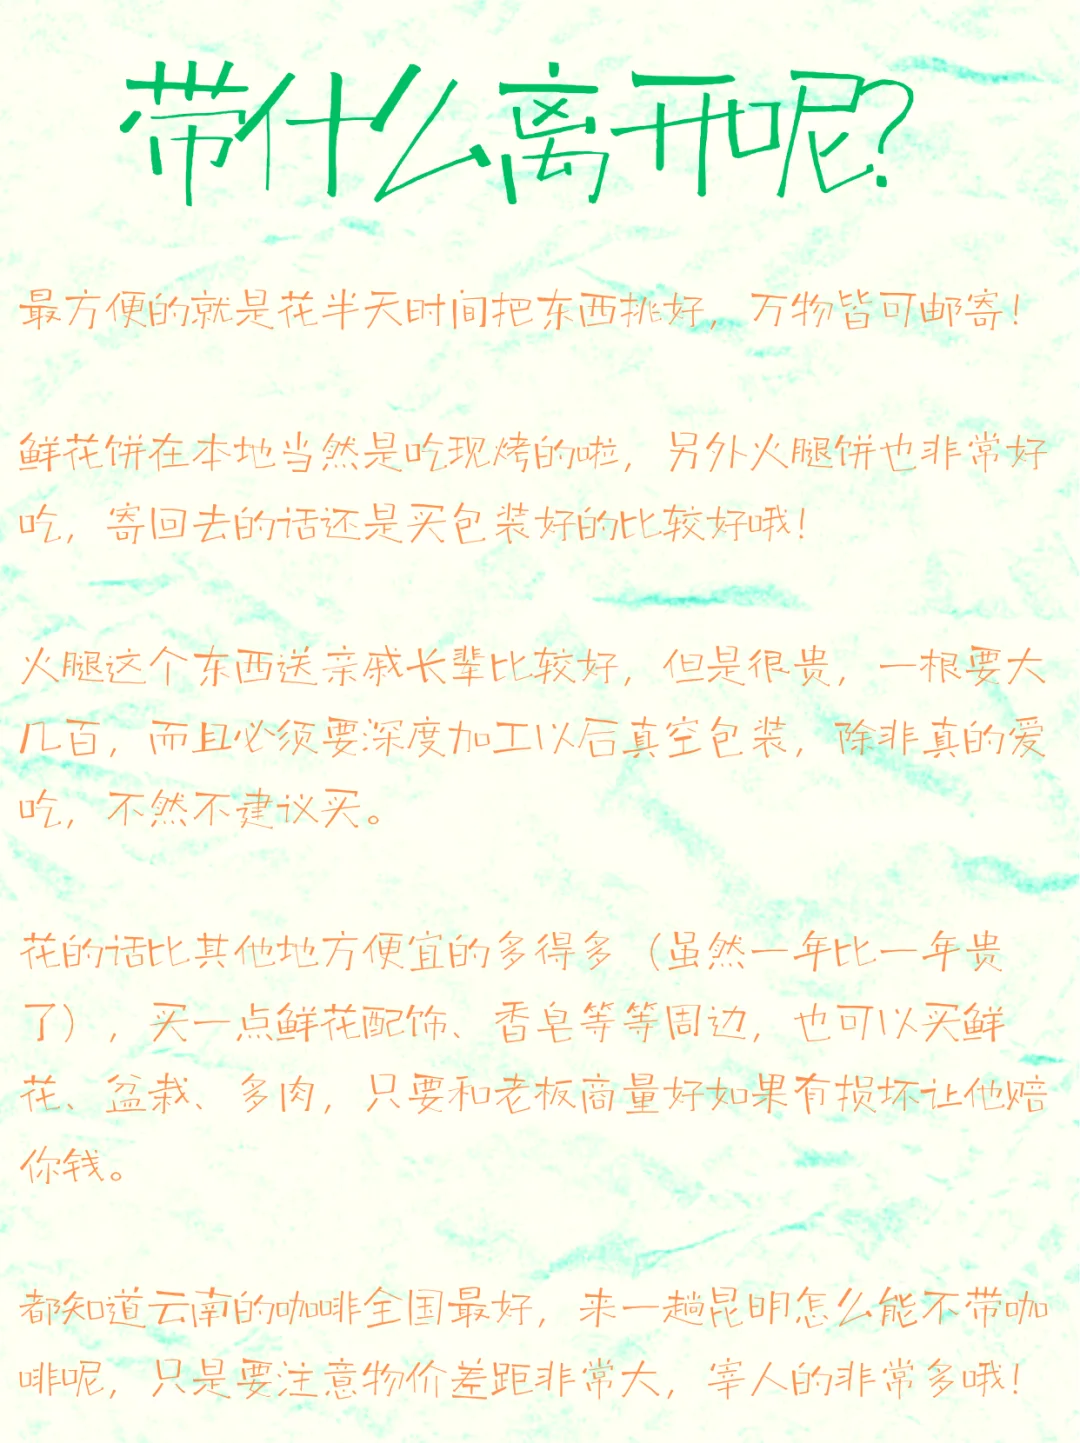 带什么离开呢?
最方便的就是花半天时间把东西挑好，万物皆可邮寄！
鲜花饼在本地当然是吃现烤的啦，另外火腿饼也非常好
吃，寄回去的话还是买包装好的比较好哦！
火腿这个东西送亲戚长辈比较好，但是很贵，一根要大
几百，而且必须要深度加工以后真空包装，除非真的爱
吃，不然不建议买。
花的话比其他地方便宜的多得多（虽然一年比一年贵
了），买一点鲜花配饰、香皂等等周边，也可以买鲜
花、盆栽、多肉，只要和老板商量好如果有损坏让他赔
你钱。
都知道云南的咖啡全国最好，来一趟昆明怎么能不带咖
啡呢，只是要注意物价差距非常大，宰人的非常多哦！